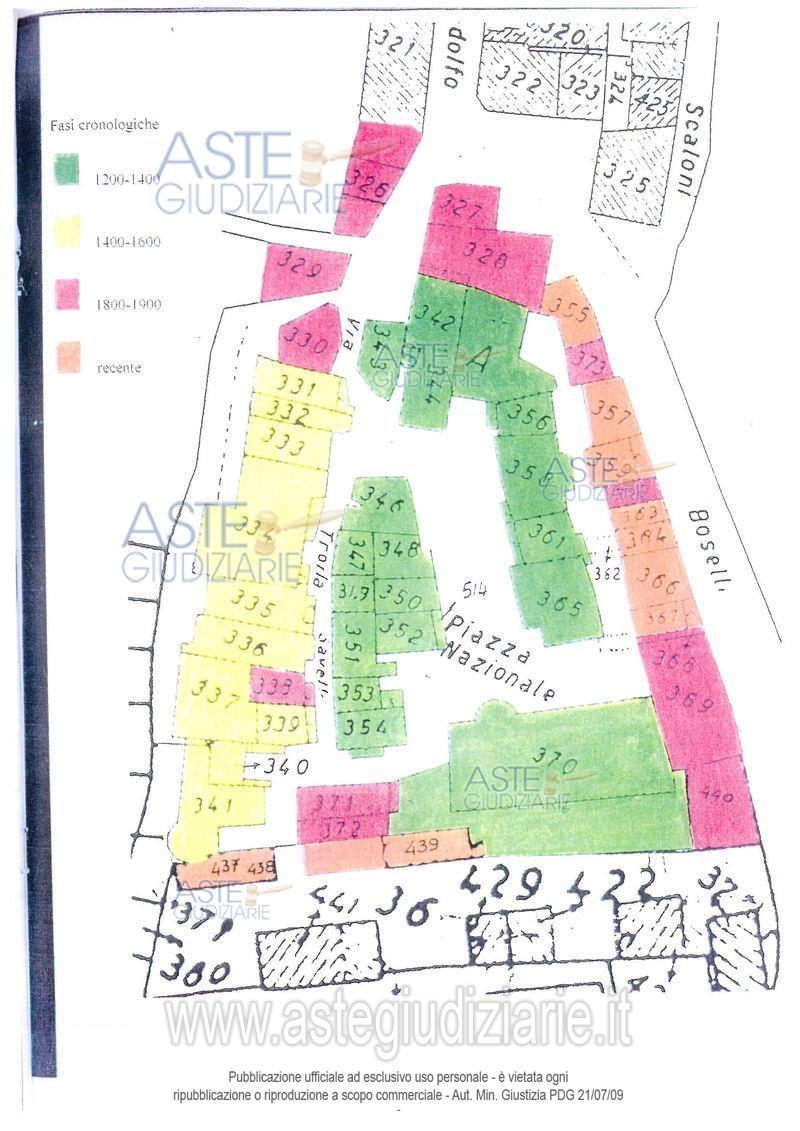 320
321
dolfo
322
323
324
425
Scaloni
325
Fasi cronologiche
ASTE
GIUDIZIARIE
1200-1400
326
327
1400-1600
328
329
1800-1900
355
342
Via
330
343
373
ASTE
GIUDIZIARIE
A
recente
344
331
357
332
356
333
359
358
ASTE
GIUDIZIARIE
346
Boselli
363
ASTE
GIUDIZIARIE
334
Troila
347
348
361
364
362
366
335
319
350
514
365
367
351
352
336
Piazza
Nazionale
Savelli
368
338
337
353
369
339
354
340
370
ASTE
GIUDIZIARIE
341
371
440
372
439
437
438
ASTE
GIUDIZIARIE
441
36
429
422
380
www.astegiudiziarie.it
Pubblicazione ufficiale ad esclusivo uso personale - è vietata ogni
ripubblicazione o riproduzione a scopo commerciale - Aut. Min. Giustizia PDG 21/07/09